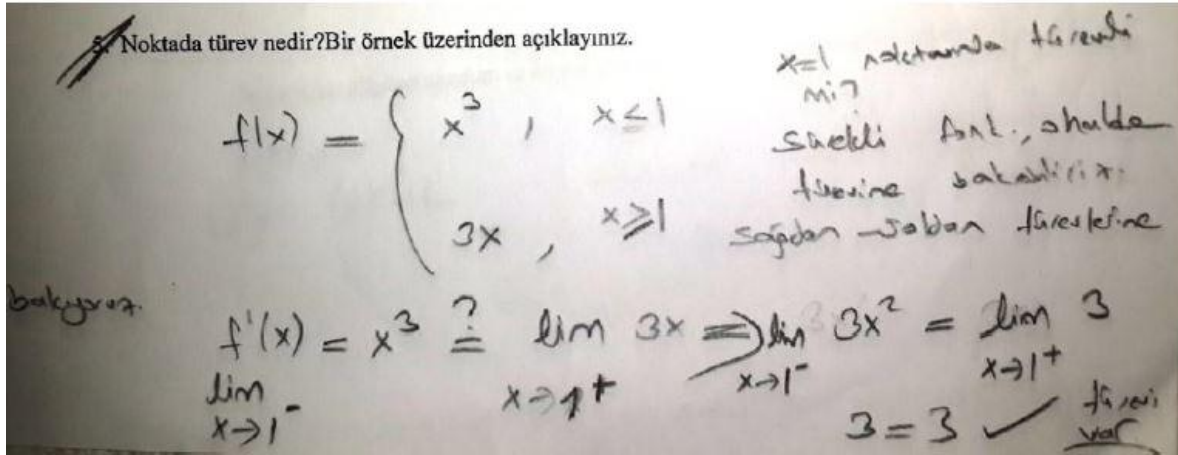 5. Noktada türev nedir?Bir örnek üzerinden açıklayınız.
x=1 noktasında türevli
mi?
f(x) = { x³ , x≤1
3x , x≥1
Sürekli fonk., o halde
türevine bakabiliriz.
sağdan - soldan türevlerine
bakıyoruz.
f'(x) = x³ ≟ lim 3x ⇒ lim 3x² = lim 3
lim x→1⁻ x→1⁺ x→1⁻ x→1⁺
3=3 ✓ türevi
var